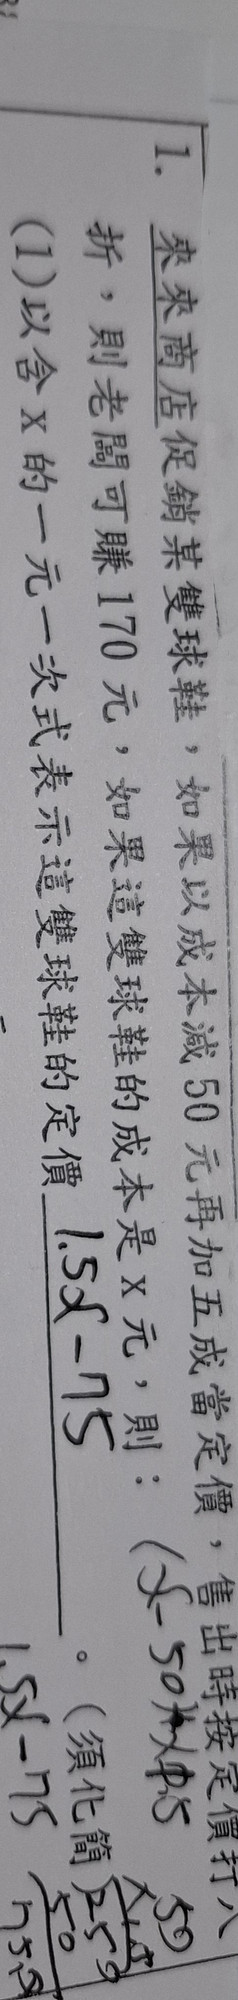 1. 來來商店促銷某雙球鞋，如果以成本減50元再加五成當定價，售出時按定價打八
折，則老闆可賺170元，如果這雙球鞋的成本是x元，則：
(x-50)×1.5
(1)以含x的一元一次式表示這雙球鞋的定價 1.5x-75 。(須化簡)
1.5x-75
50
×1.5
250
50
75.0